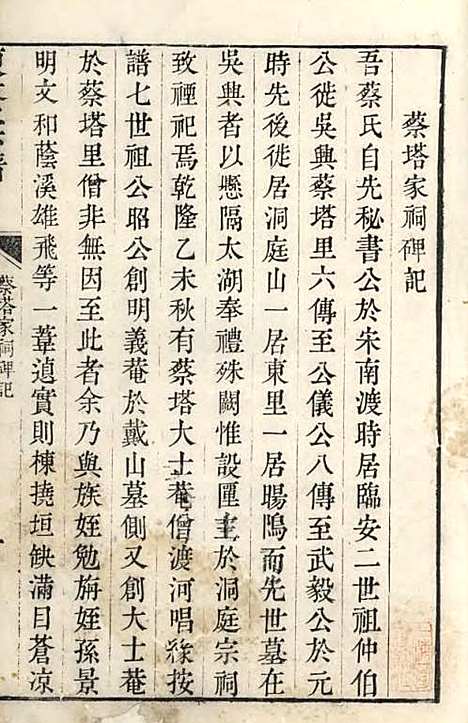 蔡塔家祠碑記
吾蔡氏自先秘書公於宋南渡時居臨安二世祖仲伯
公徙吳興蔡塔里六傳至公儀公八傳至武毅公於元
時先後徙居洞庭山一居東里一居暘隖而先世墓在
吳興者以懸隔太湖奉禮殊闕惟設匣主於洞庭宗祠
致禋祀焉乾隆乙未秋有蔡塔大士菴僧渡河唱緣按
譜七世祖公昭公創明義菴於戴山墓側又創大士菴
於蔡塔里僧非無因至此者余乃與族姪勉旃姪孫景
明文和蔭溪雄飛等一葦邅實則棟撓垣缺滿目蒼凉
蔡塔家祠碑記